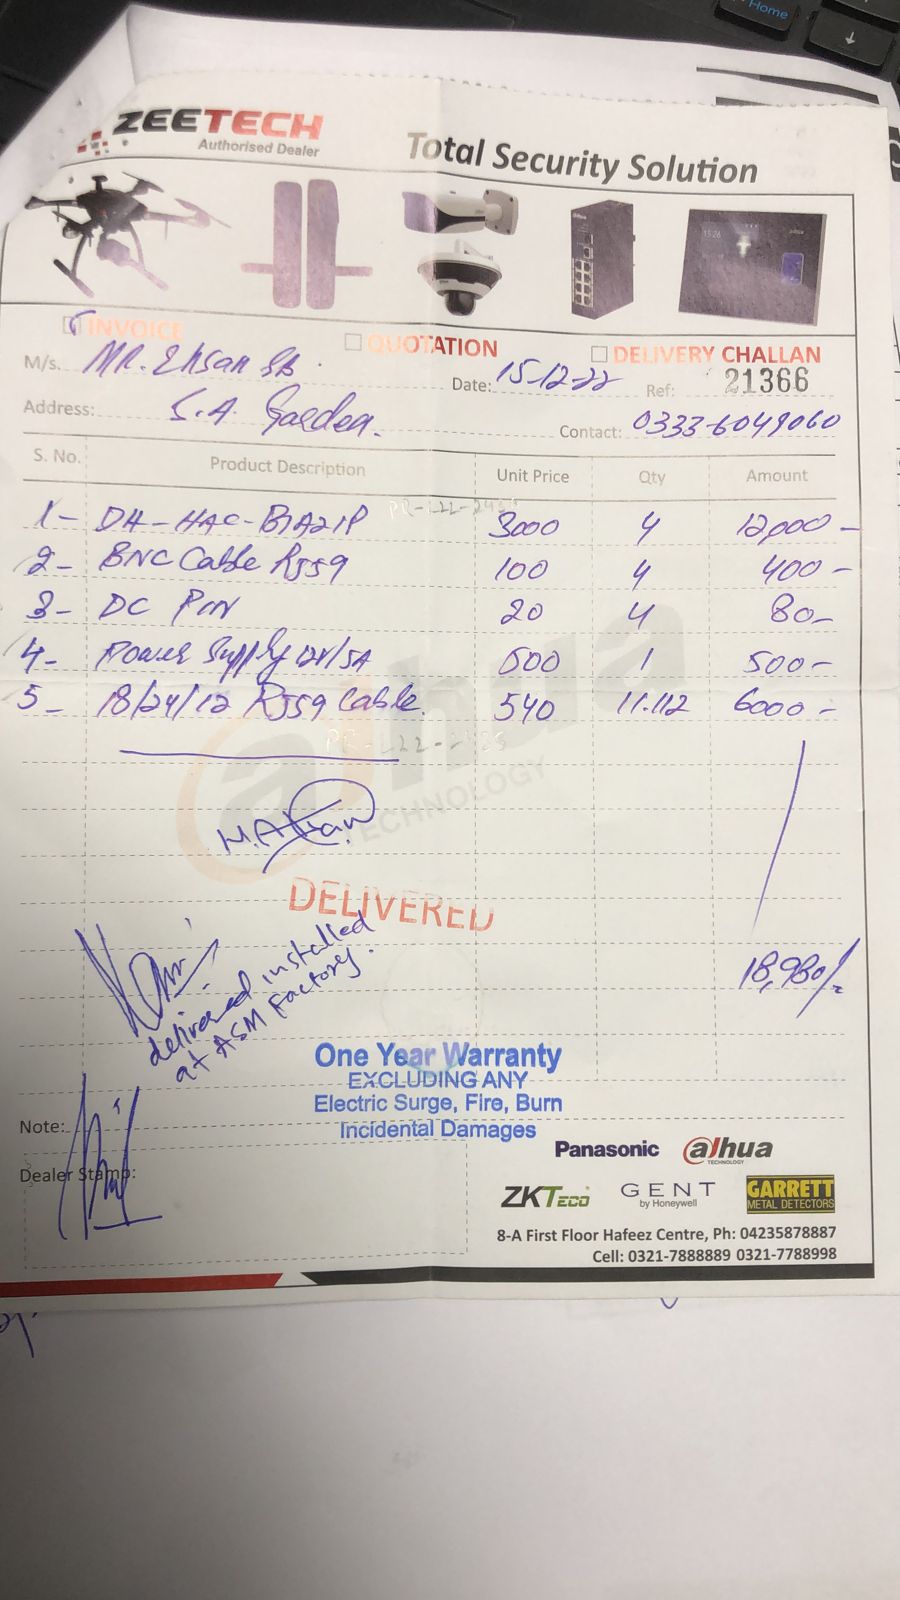 ZEETECH
Authorised Dealer
Total Security Solution
INVOICE
QUOTATION
DELIVERY CHALLAN
M/s. MR. Ehsan Sb.
Date: 15-12-22 Ref: 21366
Address: S.A. Garden.
Contact: 0333-6049060
S. No. Product Description Unit Price Qty Amount
1- DH-HAC-B1A21P 3000 4 12,000-
2- BNC Cable RJ59 100 4 400-
3- DC PIN 20 4 80-
4- Power Supply 12V/5A 500 1 500-
5- 18/24/12 RJ59 Cable. 540 11.112 6000-
alhua
TECHNOLOGY
DELIVERED
18,980/-
delivered installed
at ASM Factory.
One Year Warranty
EXCLUDING ANY
Electric Surge, Fire, Burn
Incidental Damages
Note:
Dealer Stamp:
Panasonic alhua
TECHNOLOGY
ZKTECO GENT
by Honeywell
GARRETT
METAL DETECTORS
8-A First Floor Hafeez Centre, Ph: 04235878887
Cell: 0321-7888889 0321-7788998
Home